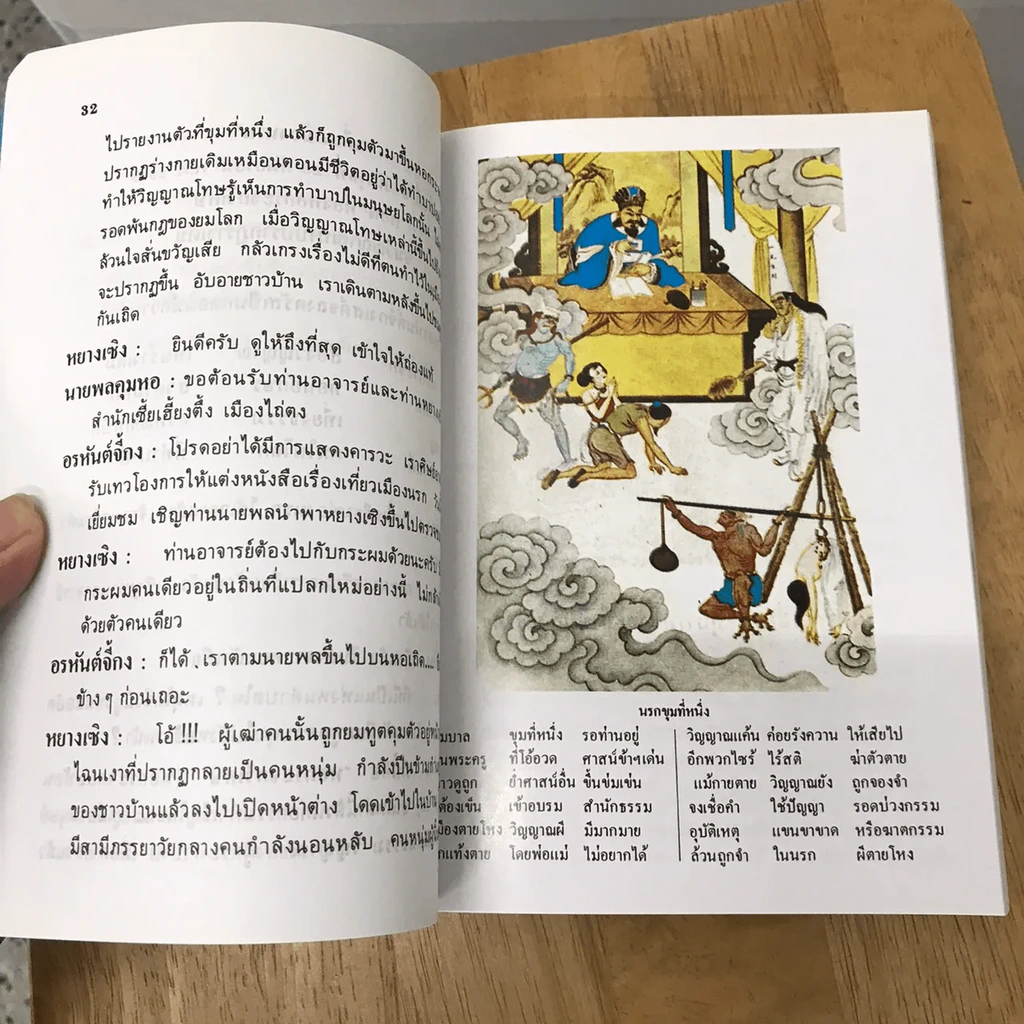 32
ไปรายงานตัวที่ขุมที่หนึ่ง แล้วก็ถูกคุมตัวมาขึ้นหอกระ
ปรากฏร่างกายเดิมเหมือนตอนมีชีวิตอยู่ว่าได้ทำบาป
ทำให้วิญญาณโทษรู้เห็นการทำบาปในมนุษยโลกนั้น
รอดพ้นกฎของยมโลก เมื่อวิญญาณโทษเหล่านี้ขึ้นไป
ล้วนใจสั่นขวัญเสีย กลัวเกรงเรื่องไม่ดีที่ตนทำไว้ใน
จะปรากฏขึ้น อับอายชาวบ้าน เราเดินตามหลังขึ้นไป
กันเถิด
หยางเซิง : ยินดีครับ ดูให้ถึงที่สุด เข้าใจให้ถ่องแท้
นายพลคุมหอ : ขอต้อนรับท่านอาจารย์และท่านหยาง
สำนักเซี้ยเฮี้ยงตึ้ง เมืองไถ่ตง
อรหันต์จี้กง : โปรดอย่าได้มีการแสดงคารวะ เราศิษย์
รับเทวโองการให้แต่งหนังสือเรื่องเที่ยวเมืองนรก
เยี่ยมชม เชิญท่านนายพลนำพาหยางเซิงขึ้นไปตรวจ
หยางเซิง : ท่านอาจารย์ต้องไปกับกระผมด้วยนะครับ
กระผมคนเดียวอยู่ในถิ่นที่แปลกใหม่อย่างนี้ ไม่กล้า
ด้วยตัวคนเดียว
อรหันต์จี้กง : ก็ได้ เราตามนายพลขึ้นไปบนหอเถิด....
ข้าง ๆ ก่อนเถอะ
หยางเซิง : โอ้ !!! ผู้เฒ่าคนนั้นถูกยมทูตคุมตัวอยู่
ไฉนเงาที่ปรากฏกลายเป็นคนหนุ่ม กำลังปีนข้าม
ของชาวบ้านแล้วลงไปเปิดหน้าต่าง โดดเข้าไปในบ้าน
มีสามีภรรยาวัยกลางคนกำลังนอนหลับ คนหนุ่มผู้
นรกขุมที่หนึ่ง
มบาล ขุมที่หนึ่ง รอท่านอยู่ วิญญาณแค้น ค่อยรังควาน ให้เสียไป
นพระครู ที่โอ้อวด ศาสน์ข้าฯเด่น อีกพวกไซร้ ไร้สติ ฆ่าตัวตาย
าวดูถูก ย่ำศาสน์อื่น ขึ้นข่มเข่น แม้กายตาย วิญญาณยัง ถูกจองจำ
ต้องเข็น เข้าอบรม สำนักธรรม จงเชื่อคำ ใช้ปัญญา รอดบ่วงกรรม
มืองตายโหง วิญญาณผี มีมากมาย อุบัติเหตุ แขนขาขาด หรือฆาตกรรม
กแท้งตาย โดยพ่อแม่ ไม่อยากได้ ล้วนถูกจำ ในนรก ผีตายโหง